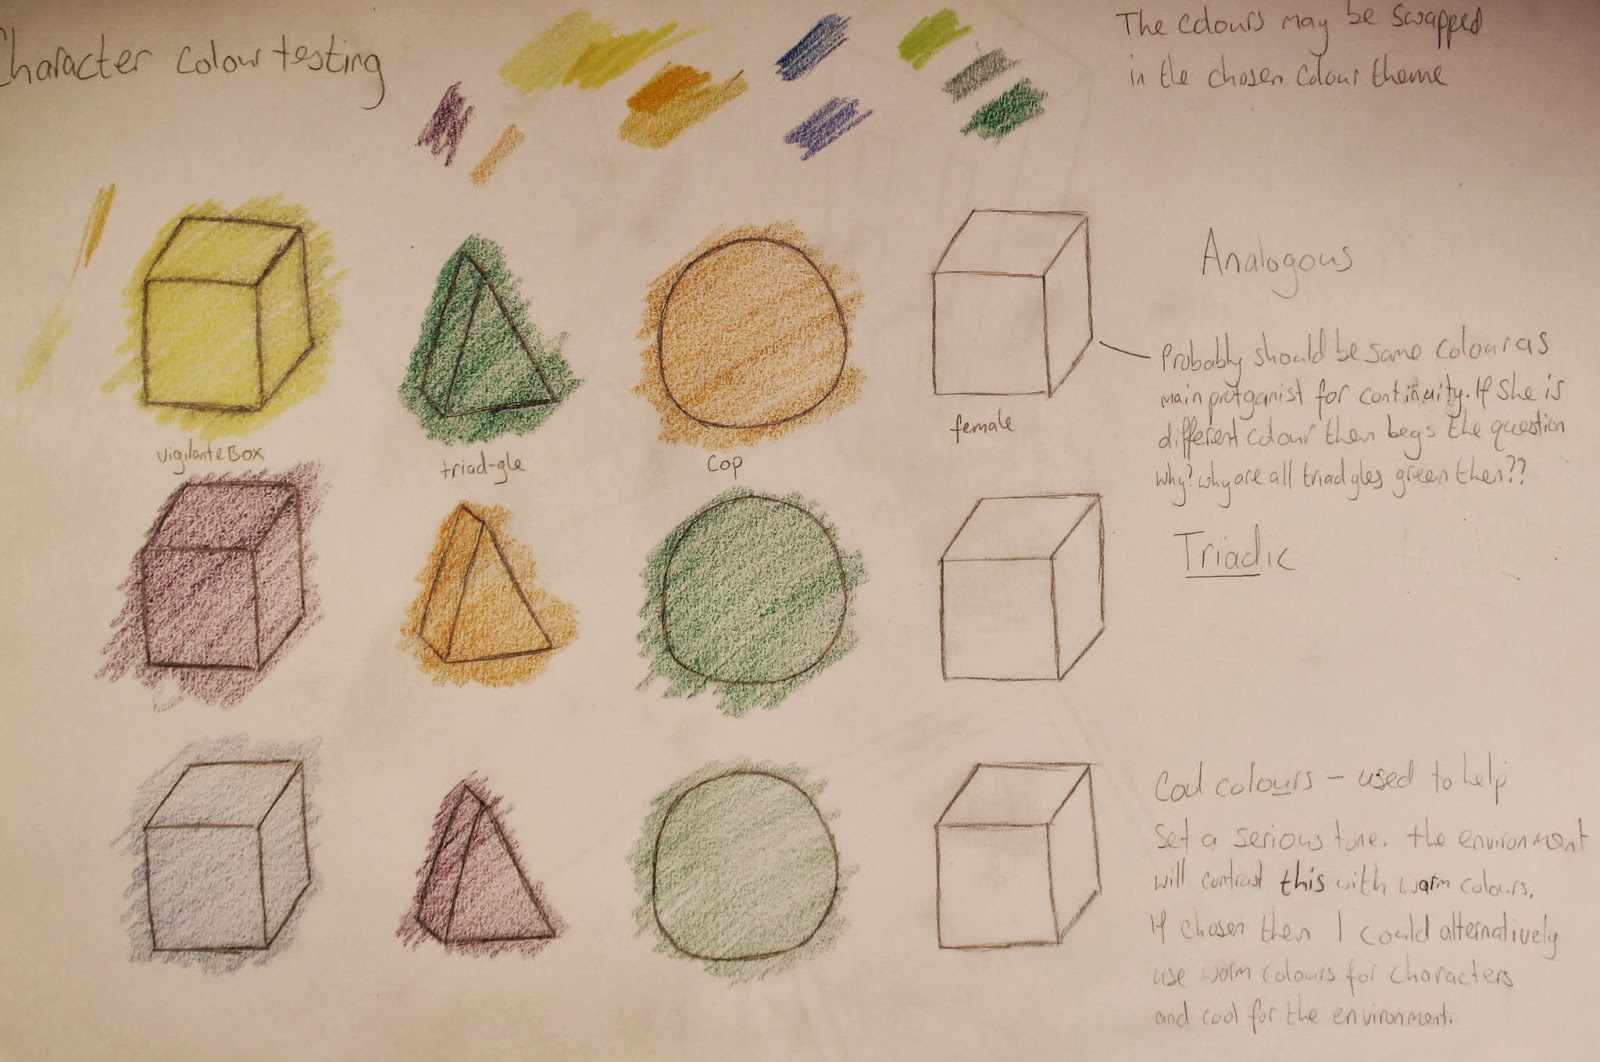 Character colour testing
The colours may be swapped
in the chosen colour theme
Analogous
Probably should be same colour as
main protganist for continuity. If she is
different colour then begs the question
why? why are all triadgles green then??
vigilanteBox
triad-gle
cop
female
Triadic
Cool colours - used to help
set a serious tone. the environment
will contrast this with warm colours.
If chosen then I could alternatively
use warm colours for characters
and cool for the environment.